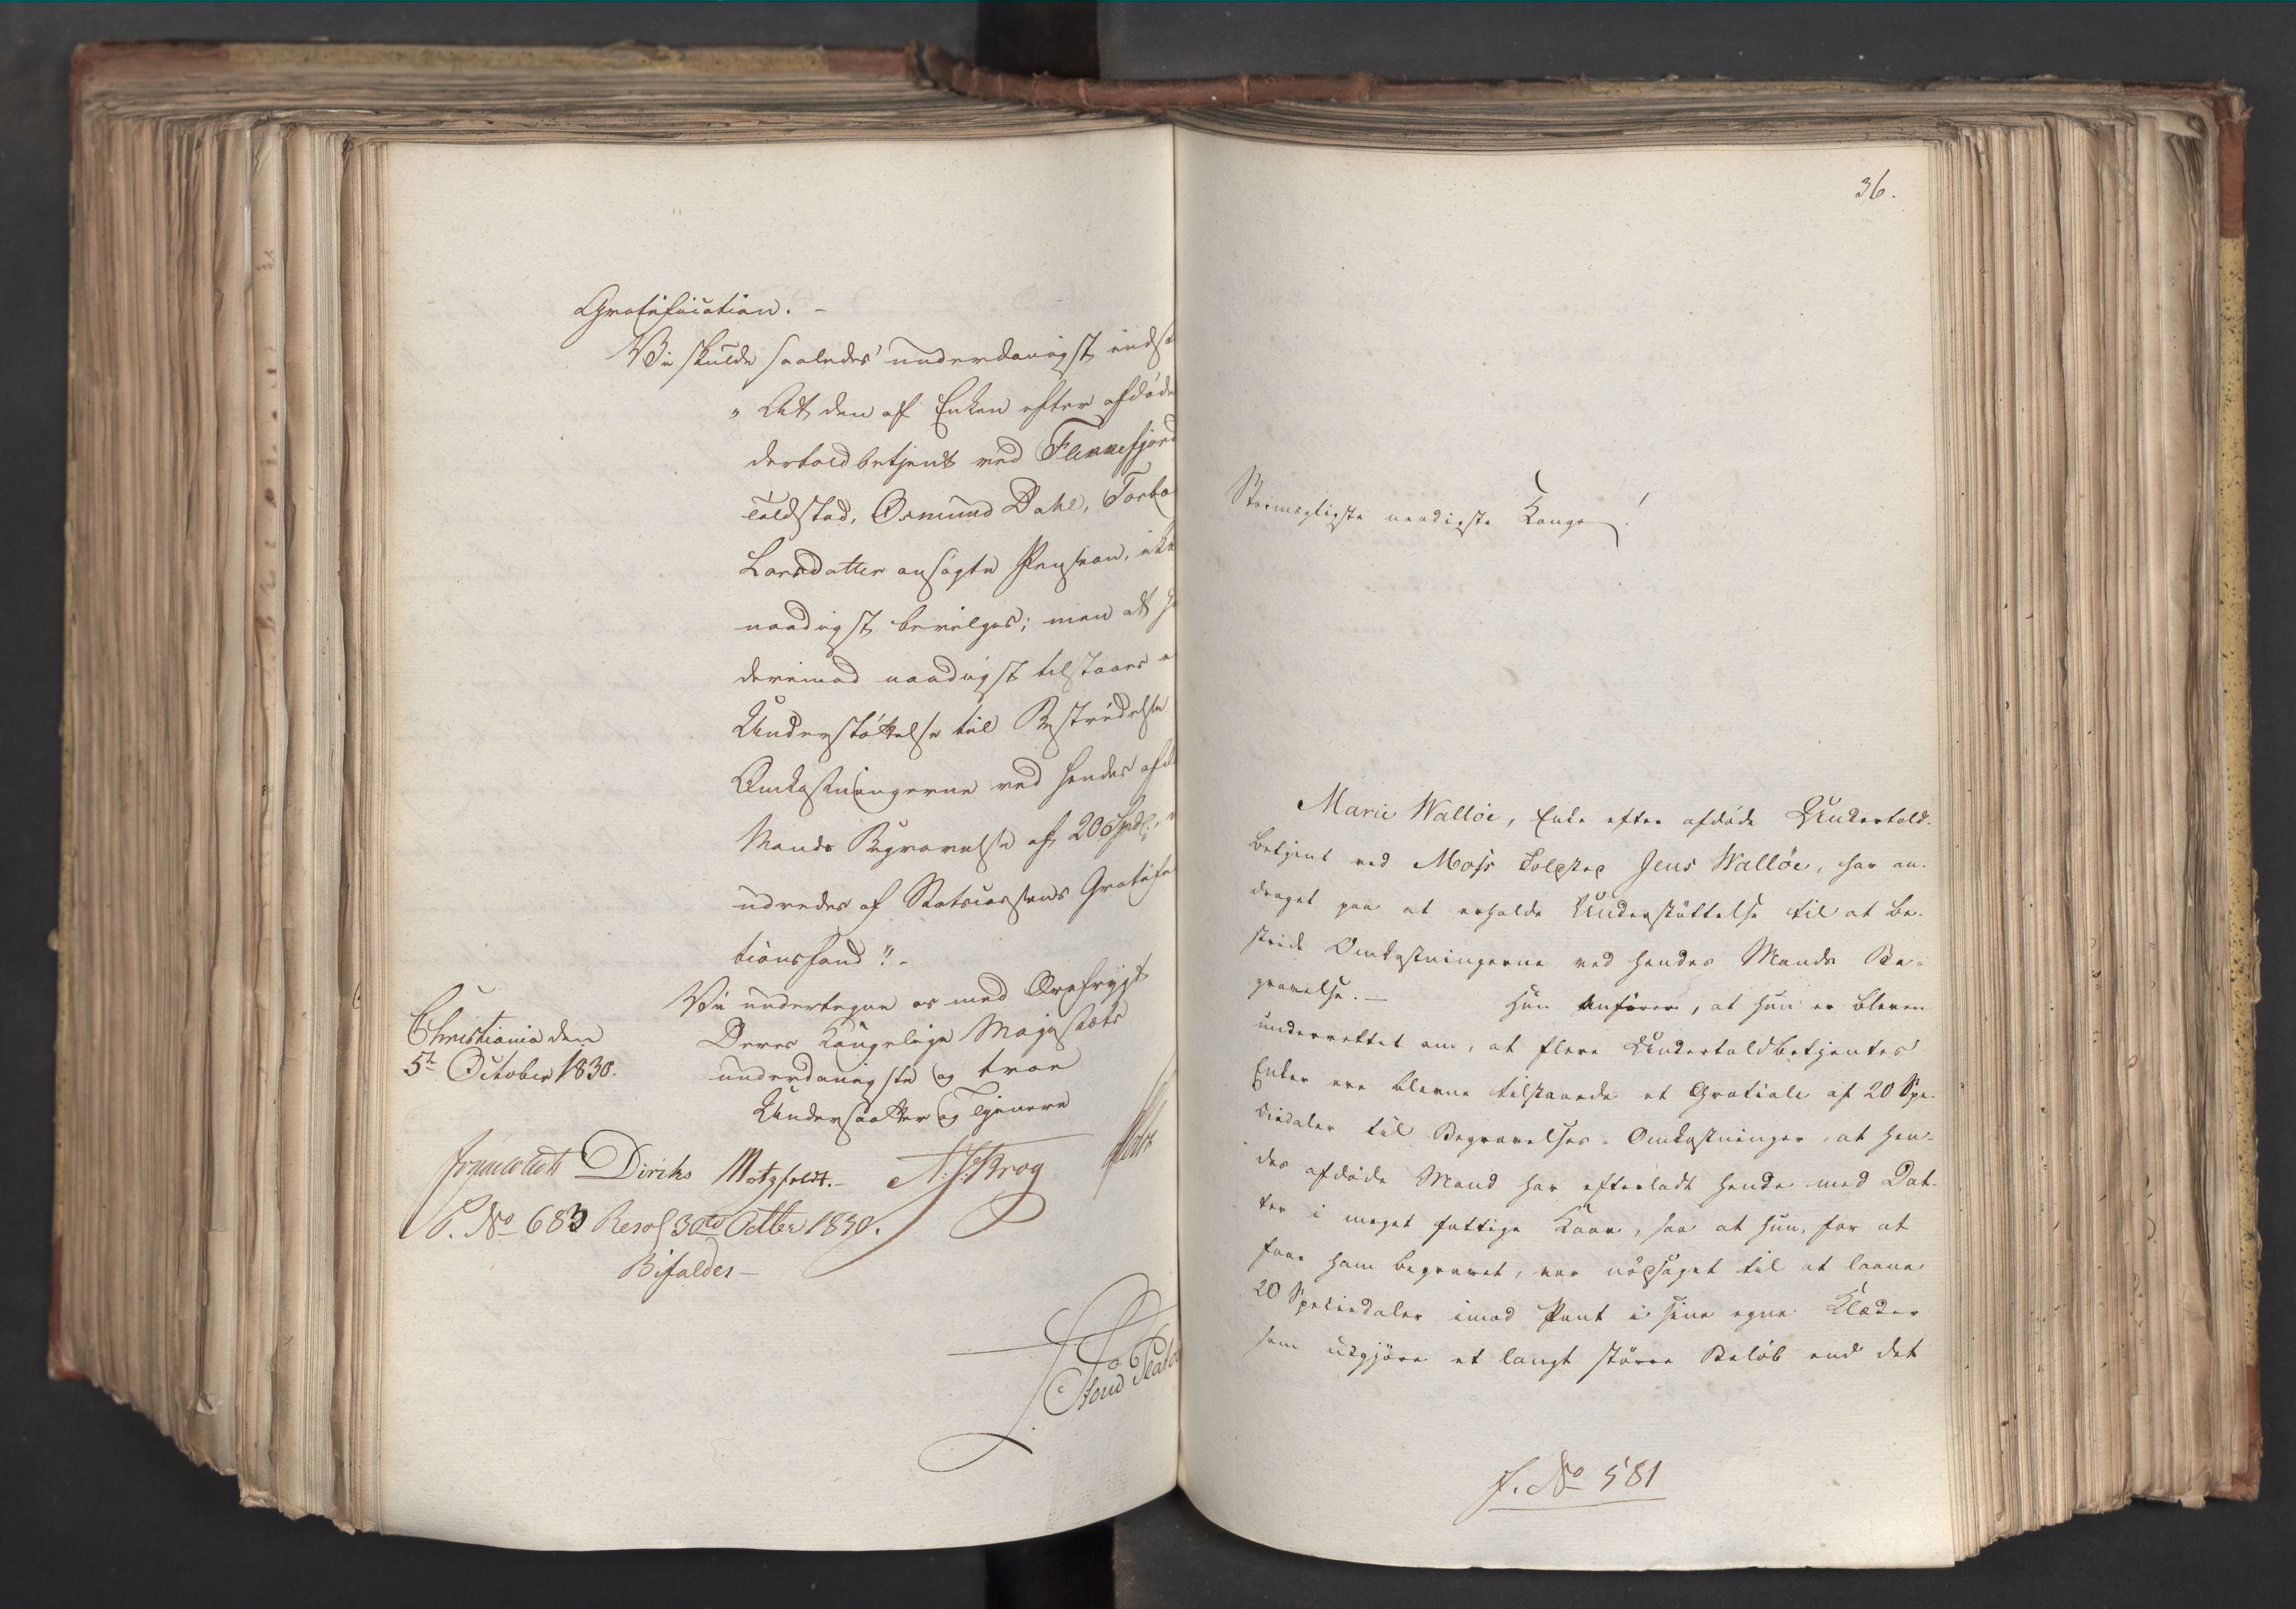 Gratification. -
Vi skulde saaledes underdanigst indst
„ At den af Enken efter afdøde
dertoldbetjent ved Flekkefjord
Toldsted, Osmund Dahl, Torbo
Larsdatter ansøgte Pension, ikke
naadigst bevilges; men at h
derimod naadigst tilstaaes e
Understøttelse til Bestridelse
Omkostningerne ved hendes afd
Mands Begravelse af 20 Spdl,
udredes af Statscassens Gratifi
tionsfond". -
Vi undertegne os med Ærefrygt
Deres Kongelige Majestæts
underdanigste og troe
Undersaatter og Tjenere
Christiania den
5te October 1830.
Diriks Motzfeldt. - Krog
P. No 683 Resol 30te Octbr 1830.
Bifaldes -
36.
Stormægtigste naadigste Konge!
Marie Walløe, Enke efter afdøde Undertold-
betjent ved Moss Toldsted Jens Walløe, har an-
draget paa at erholde Understøttelse til at be-
stride Omkostningerne ved hendes Mands Be-
gravelse. — Hun anfører, at hun er bleven
underrettet om, at flere Undertoldbetjentes
Enker ere blevne tilstaaede et Gratiale af 20 Spe-
ciedaler til Begravelses-Omkostninger, at hen-
des afdøde Mand har efterladt hende med Dat-
ter i meget fattige Kaar, saa at hun, for at
faae ham begravet, var nødsaget til at laane
20 Speciedaler imod Pant i sine egne Klæder
som udgjøre et langt større Beløb end det
J. No 581